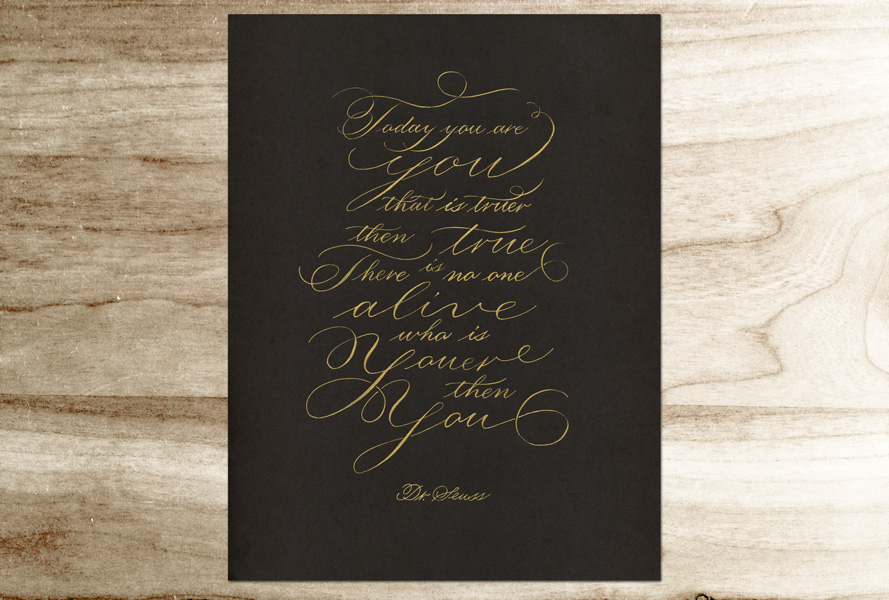 Today you are
you
that is truer
then true
There is no one
alive
who is
Youer
then
You
Dr. Seuss